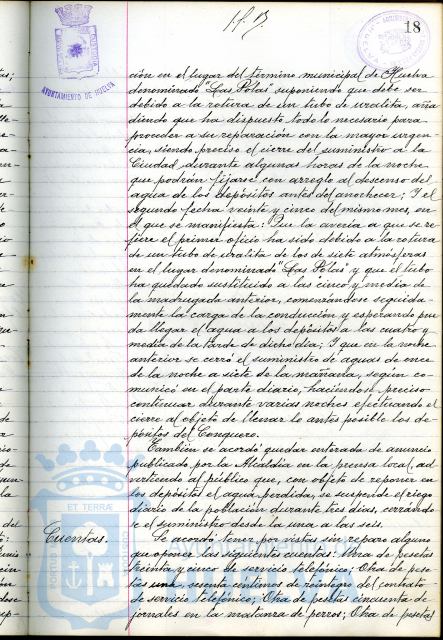 18
AYUNTAMIENTO DE HUELVA
ción en el lugar del término municipal de Huelva
denominado "Las Polas" suponiendo que debe ser
debido a la rotura de un tubo de uralita, aña
diendo que ha dispuesto todo lo necesario para
proceder a su reparación con la mayor urgen
cia, siendo preciso el cierre del suministro a la
Ciudad, durante algunas horas de la noche
que podrán fijarse con arreglo al descenso del
agua de los depósitos antes del anochecer; Y el
segundo fecha veinte y cinco del mismo mes, en
el que se manifiesta: Que la avería a que se re
fiere el primer oficio ha sido debido a la rotura
de un tubo de uralita de los de siete atmósferas
en el lugar denominado "Las Polas" y que el tubo
ha quedado sustituido a las cinco y media de
la madrugada anterior, comenzándose seguida
mente la carga de la conducción y esperando pue
da llegar el agua a los depósitos a las cuatro y
media de la tarde de dicho día; Y que en la noche
anterior se cerró el suministro de aguas de once
de la noche a siete de la mañana, según co
municó en el parte diario, haciéndose preciso
continuar durante varias noches efectuando el
cierre al objeto de llenar lo antes posible los de
pósitos del Conquero.
También se acordó quedar enterada de anuncio
publicado por la Alcaldía en la prensa local, ad
virtiendo al público que, con objeto de reponer en
los depósitos el agua perdida, se suspende el riego
diario de la población durante tres días, cerrando
se el suministro desde la una a las seis.
Cuentas.
Se acordó tener por vistas sin reparo alguno
que oponer las siguientes cuentas: Una de pesetas
treinta y cinco de servicio telefónico; Otra de pese
tas una, sesenta céntimos de reintegro del contrato
de servicio telefónico; Otra de pesetas cincuenta de
jornales en la matanza de perros; Otra de pesetas
ET TERRÆ